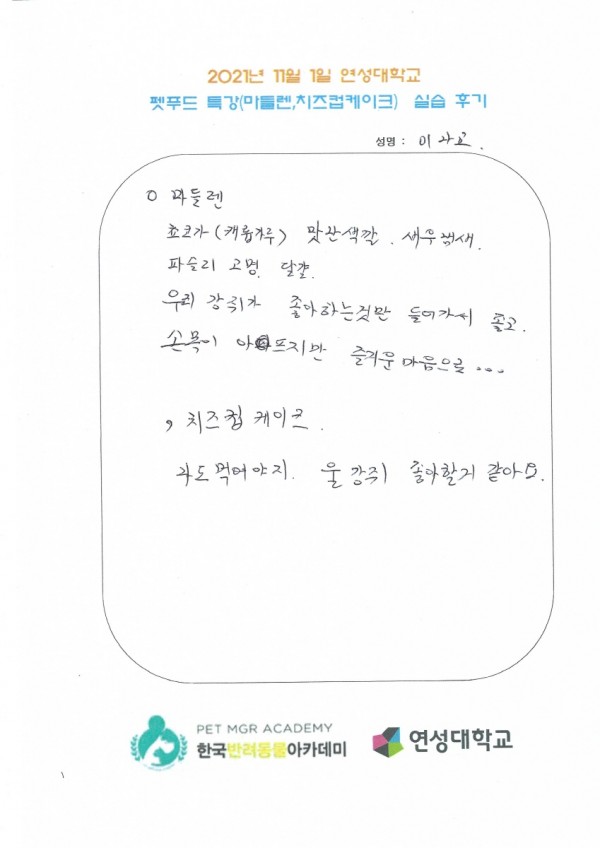 2021년 11월 1일 연성대학교
펫푸드 특강(마들렌,치즈컵케이크) 실습 후기
성명 :
o 마들렌
쵸코가 (캐롭가루) 맛난색깔. 새우냄새.
파슬리 고명. 달걀.
우리 강쥐가 좋아하는것만 들어가서 좋고.
손목이 아프지만 즐거운 마음으로...
, 치즈컵 케이크.
나도 먹어야지. 울 강쥐 좋아할거 같아요.
PET MGR ACADEMY
한국반려동물아카데미
연성대학교